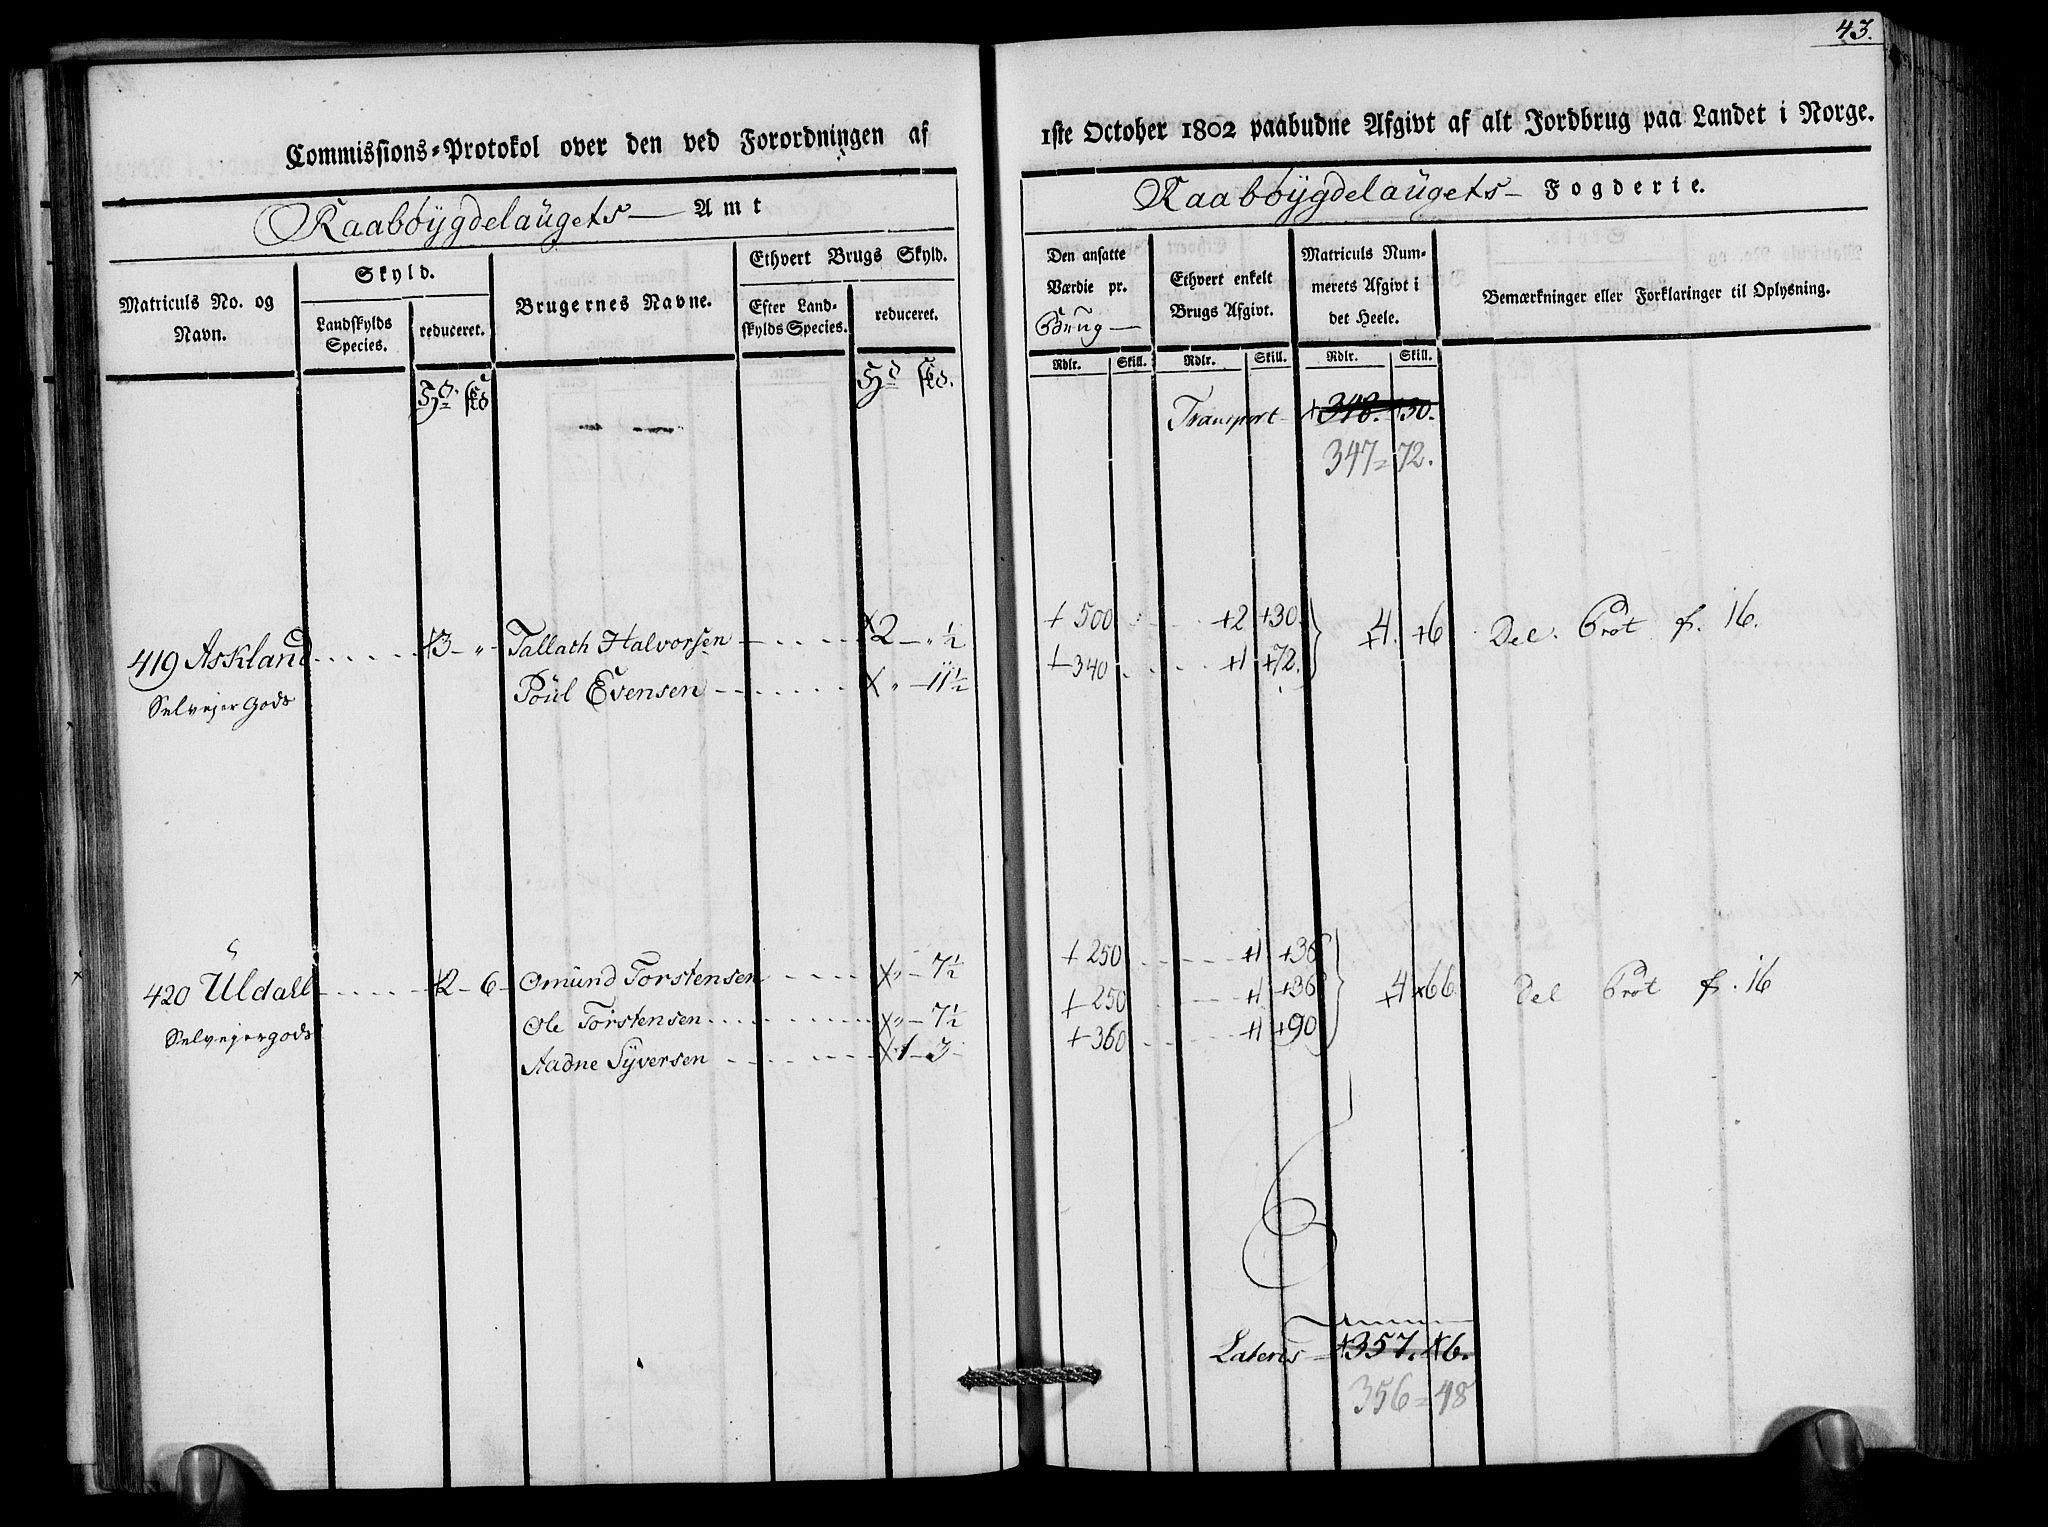 43.
Commissions-Protokol over den ved Forordningen af
1ste October 1802 paabudne Afgivt af alt Jordbrug paa Landet i Norge.
Raaböygdelaugets Amt
Raaböygdelaugets Fogderie.
Matriculs No. og Navn.
Skyld.
Landskylds Species.
reduceret.
Brugernes Navne.
Ethvert Brugs Skyld.
Efter Landskylds Species.
reduceret.
Den ansatte Værdie pr. Brug
Ethvert enkelt Brugs Afgivt.
Matriculs Nummerets Afgivt i det Heele.
Bemærkninger eller Forklaringer til Oplysning.
Rdlr. Skill. Rdlr. Skill. Rdlr. Skill.
Transport +348. +30.
347=72.
419 Askland +3 - „ - Tallach Halvorsen x2 - „ ½ + 500 +2 +30. +4. +6 Del. Prot f. 16.
Selvejer Gods Poül Evensen x „ - 11½ + 340 +1 +72.
420 Uldall +2 - 6 - Omünd Torstensen x „ - 7½ + 250 +1 +36 +4 x66 Del Prot f. 16
Selvejergods Ole Torstensen x „ - 7½ + 250 +1 +36
Aadne Syversen x1 - 3 - + 360 +1 +90
Lateris +357. x6.
356=48